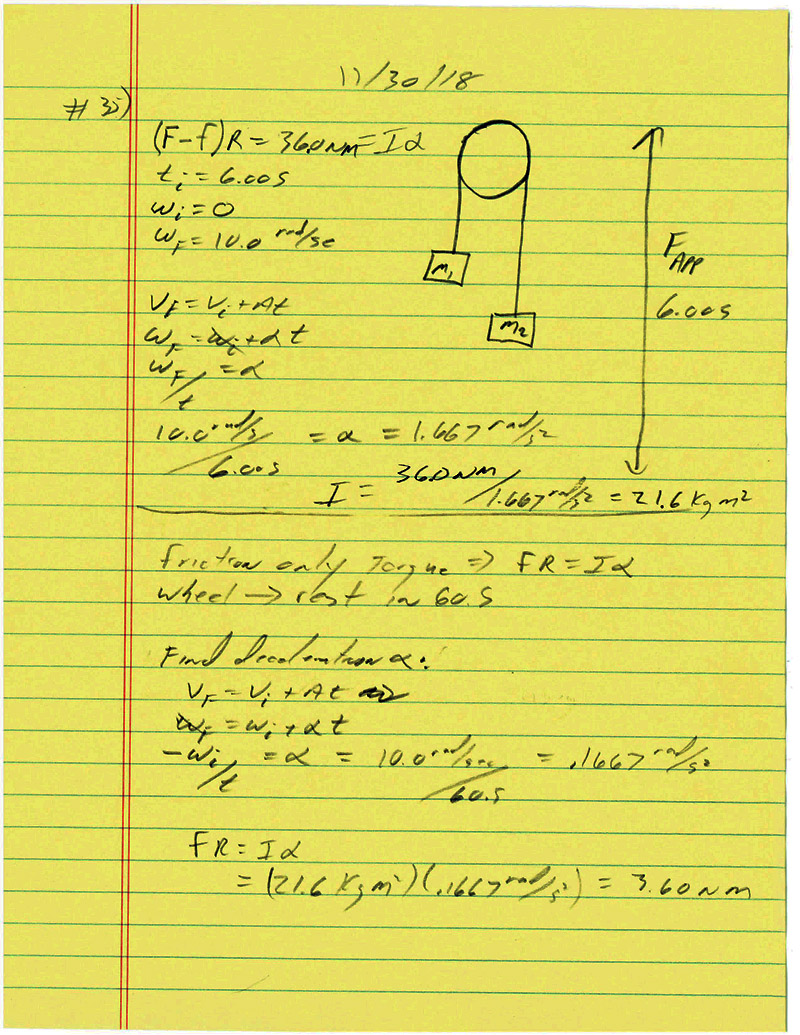 11/30/18
# 35)
(F-f)R = 36.0 NM = Iα
ti = 6.00s
ωi = 0
ωF = 10.0 rad/sec
m1
m2
FAPP
6.00s
VF = Vi + At
ωF = ωi + αt
ωF/t = α
10.0 rad/s / 6.00s = α = 1.667 rad/s²
I = 36.0 NM / 1.667 rad/s² = 21.6 Kg m²
Friction only Torque => FR = Iα
Wheel → rest in 60.s
Find deceleration α:
VF = Vi + At
ωF = ωi + αt
-ωi/t = α = 10.0 rad/sec / 60.s = .1667 rad/s²
FR = Iα
= (21.6 Kg m²)(.1667 rad/s²) = 3.60 NM